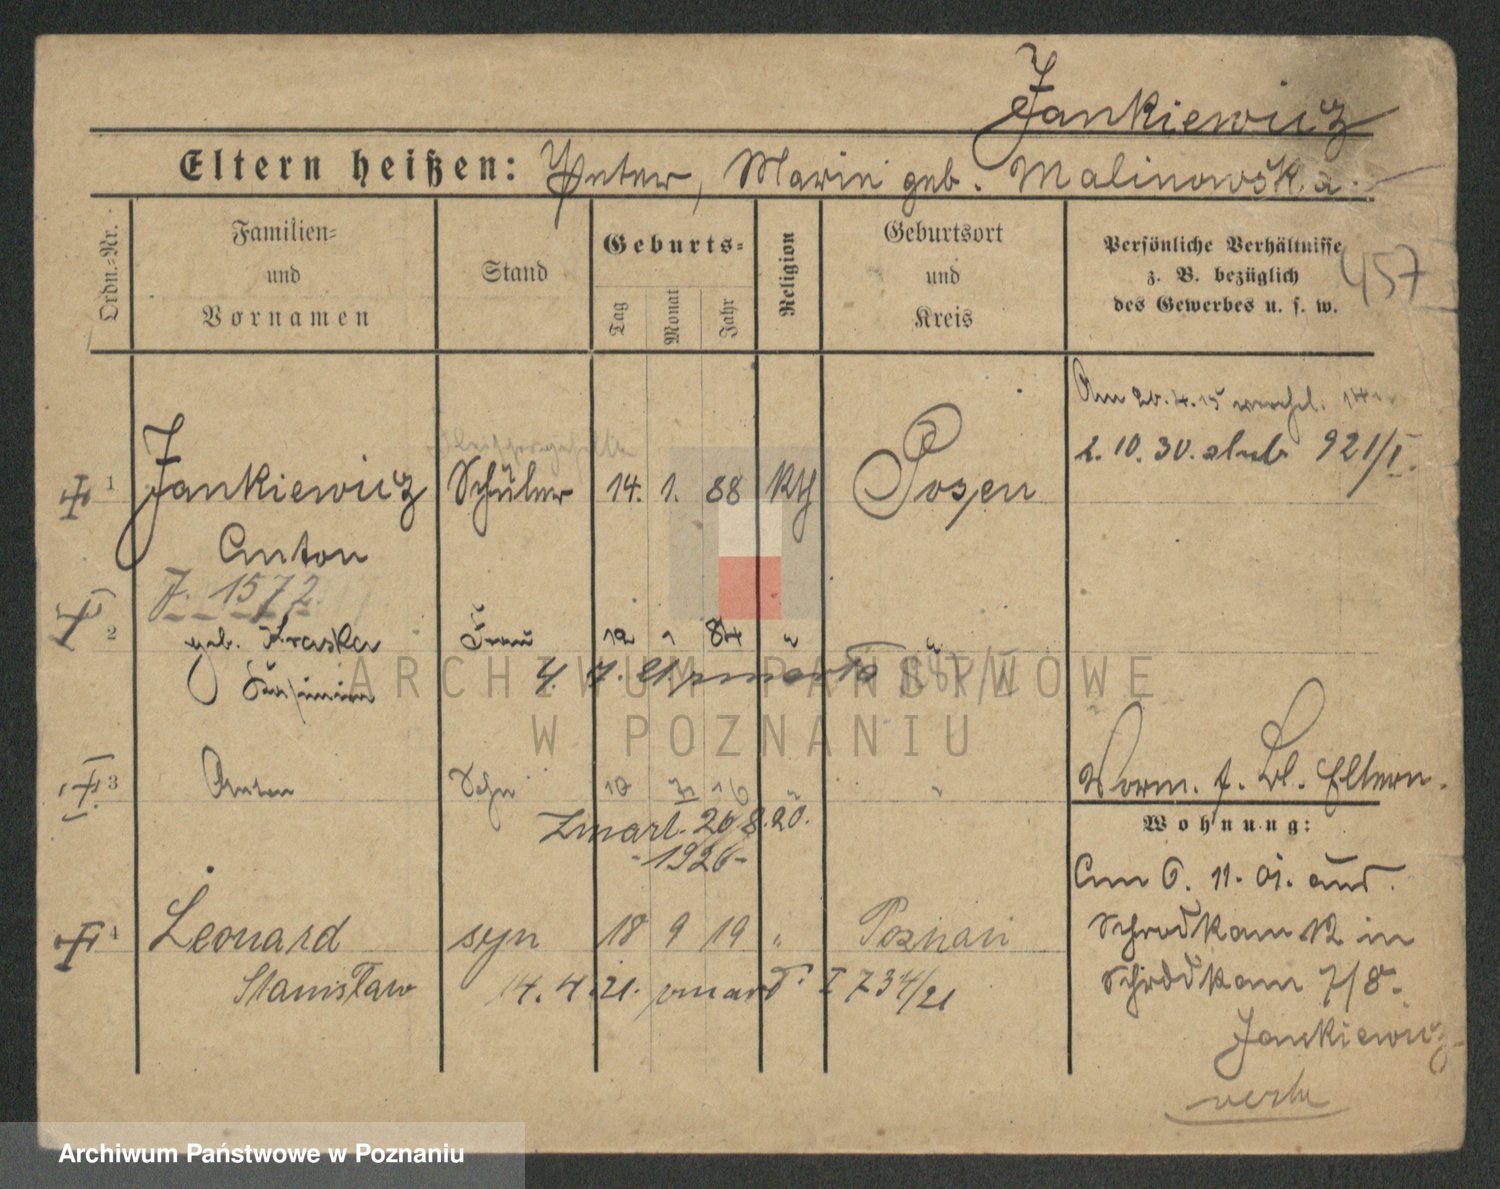 Jankiewicz
Eltern heißen: Peter, Marie geb. Malinowska.
Ordn.-Nr.
Familien-
und
Vornamen
Stand
Geburts-
Tag
Monat
Jahr
Religion
Geburtsort
und
Kreis
Persönliche Verhältnisse
z. B. bezüglich
des Gewerbes u. s. w.
457
Am 20.4.15
2. 10. 30. slub 921/I.
1 Jankiewicz Schüler 14. 1. 88 Kth Posen
Anton
J. 1572
2 geb. Kraska Frau 12 1 84 " "
4. 7. zmarła
3 Anton Sohn 10 " "
Zmarł. 26 8. 20.
-1926-
Vorm. f. Bl. Eltern.
Wohnung:
Am 6. 11. 01. aus.
Schrodkam 12 in
Schrodkam 7/8.
Jankiewicz
4 Leonard syn 18 9 19 " Poznań
Stanisław 14. 4. 21. zmarł. I 734/21
ARCHIWUM PAŃSTWOWE
W POZNANIU
Archiwum Państwowe w Poznaniu